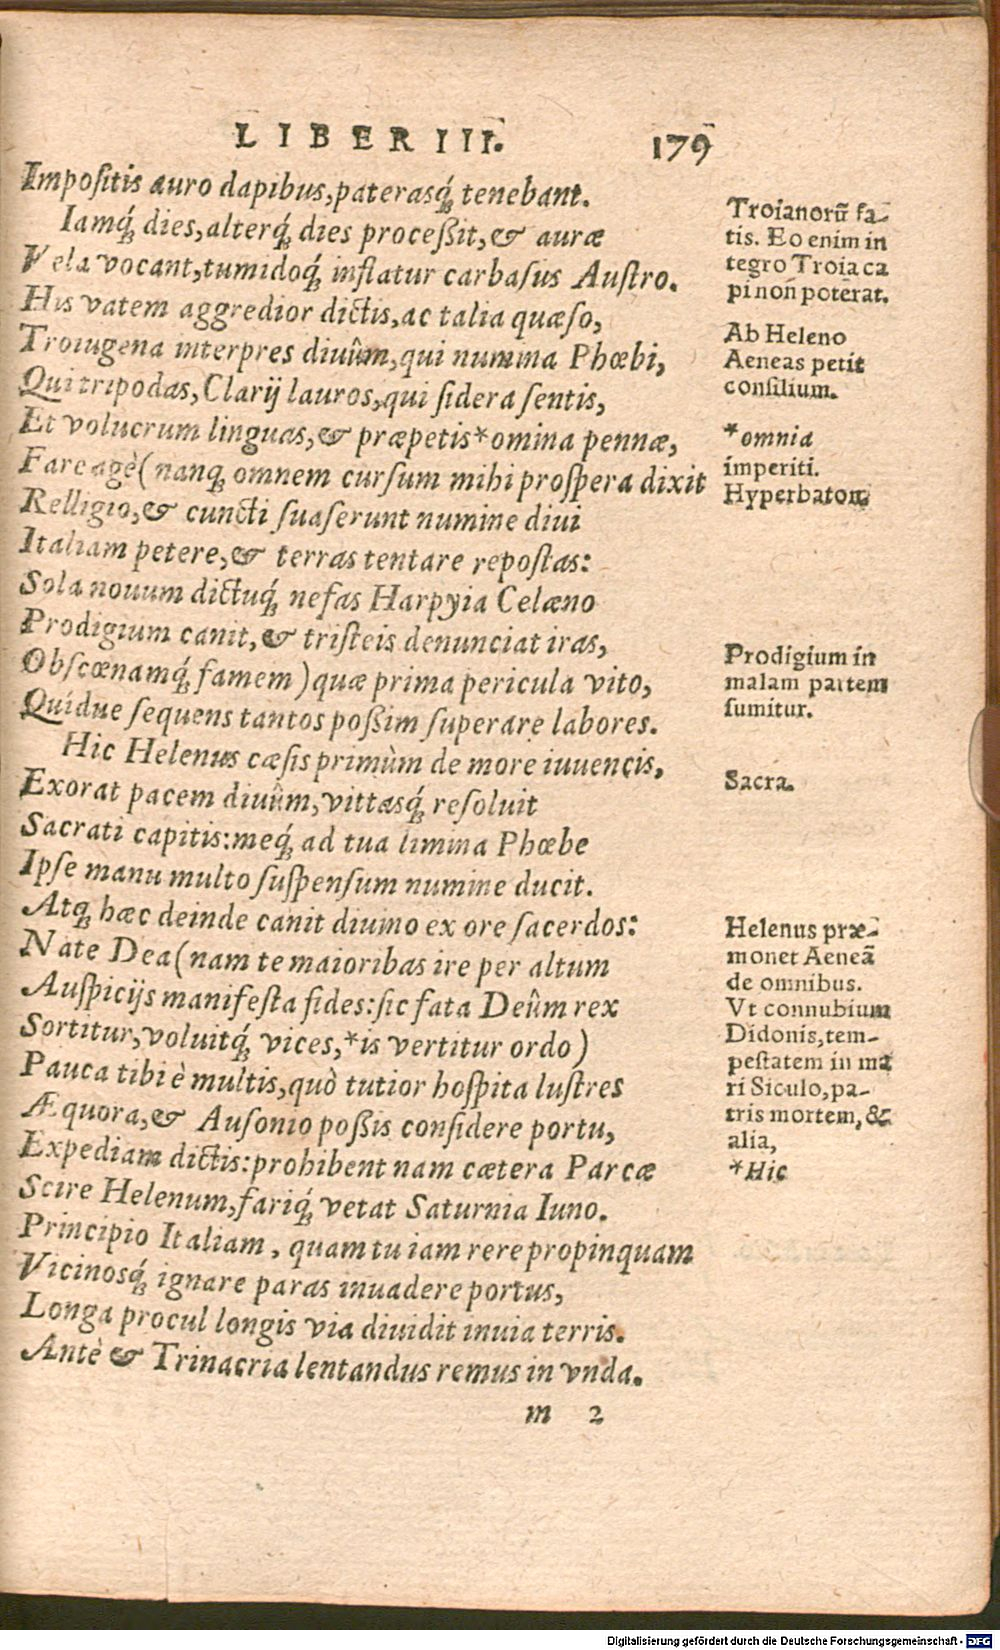 LIBER III. 179
Impoſitis auro dapibus,paterasq́; tenebant.
Iamq́; dies,alterq́; dies proceßit,& auræ
Vela vocant,tumidoq́; inflatur carbaſus Auſtro.
His vatem aggredior dictis,ac talia quæſo,
Troiugena interpres diuûm,qui numina Phœbi,
Qui tripodas,Clarij lauros,qui ſidera ſentis,
Et volucrum linguas,& præpetis*omina pennæ,
Fare agè(nanq; omnem curſum mihi proſpera dixit
Relligio,& cuncti ſuaſerunt numine diui
Italiam petere,& terras tentare repoſtas:
Sola nouum dictuq́; nefas Harpyia Celæno
Prodigium canit,& triſteis denunciat iras,
Obſcœnamq́; famem)quæ prima pericula vito,
Quidue ſequens tantos poßim ſuperare labores.
Hic Helenus cæſis primùm de more iuuencis,
Exorat pacem diuûm,vittasq́; reſoluit
Sacrati capitis:meq́; ad tua limina Phœbe
Ipſe manu multo ſuſpenſum numine ducit.
Atq; hæc deinde canit diuino ex ore ſacerdos:
Nate Dea(nam te maioribas ire per altum
Auſpicijs manifeſta fides:ſic fata Deûm rex
Sortitur,voluitq́; vices,*is vertitur ordo)
Pauca tibi è multis,quò tutior hoſpita luſtres
Æquora,& Auſonio poßis conſidere portu,
Expediam dictis:prohibent nam cætera Parcæ
Scire Helenum,fariq́; vetat Saturnia Iuno.
Principio Italiam, quam tu iam rere propinquam
Vicinosq́; ignare paras inuadere portus,
Longa procul longis via diuidit inuia terris.
Antè & Trinacria lentandus remus in vnda.
m 2
Troianorũ fa-
tis. Eo enim in
tegro Troia ca
pi non poterat.
Ab Heleno
Aeneas petit
conſilium.
*omnia
imperiti.
Hyperbaton
Prodigium in
malam partem
ſumitur.
Sacra.
Helenus præ-
monet Aeneã
de omnibus.
Vt connubium
Didonis,tem-
peſtatem in ma
ri Siculo,pa-
tris mortem,&
alia,
*Hic
Digitalisierung gefördert durch die Deutsche Forschungsgemeinschaft - DFG